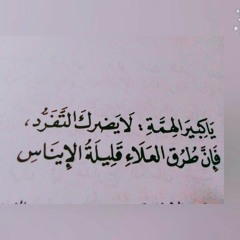 يَا كَبِيرَ الهِمَّةِ : لَا يَضرك التَّفَرُّد ،
فَإِنَّ طُرُقَ العَلَاءِ قَلِيلَةُ الإِينَاسِ